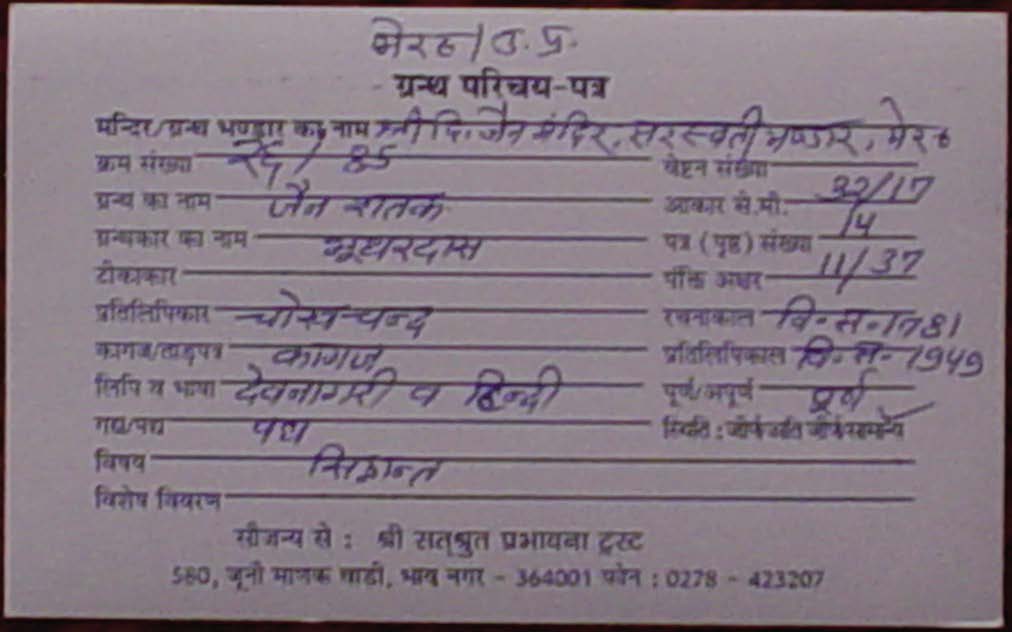 मेरठ / उ. प्र.
ग्रन्थ परिचय-पत्र
मन्दिर/ग्रन्थ भण्डार का नाम श्री दि. जैन मंदिर, सरस्वती भण्डार, मेरठ
क्रम संख्या / 85 वेष्टन संख्या
ग्रन्थ का नाम जैन शतक आकार से.मी. 32/17
ग्रन्थकार का नाम भूधरदास पत्र (पृष्ठ) संख्या 14
टीकाकार पंक्ति अक्षर 11/37
प्रतिलिपिकार चोखचन्द रचनाकाल वि. स.
कागज/ताड़पत्र कागज प्रतिलिपिकाल वि. स. 1949
लिपि व भाषा देवनागरी व हिन्दी पूर्ण/अपूर्ण पूर्ण
गद्य/पद्य पद्य स्थिति : जीर्ण अति जीर्ण सामान्य
विषय सिद्धान्त
विशेष विवरण
सौजन्य से : श्री सत्श्रुत प्रभावना ट्रस्ट
580, जूनी माणक वाडी, भाव नगर - 364001 फोन : 0278 - 423207